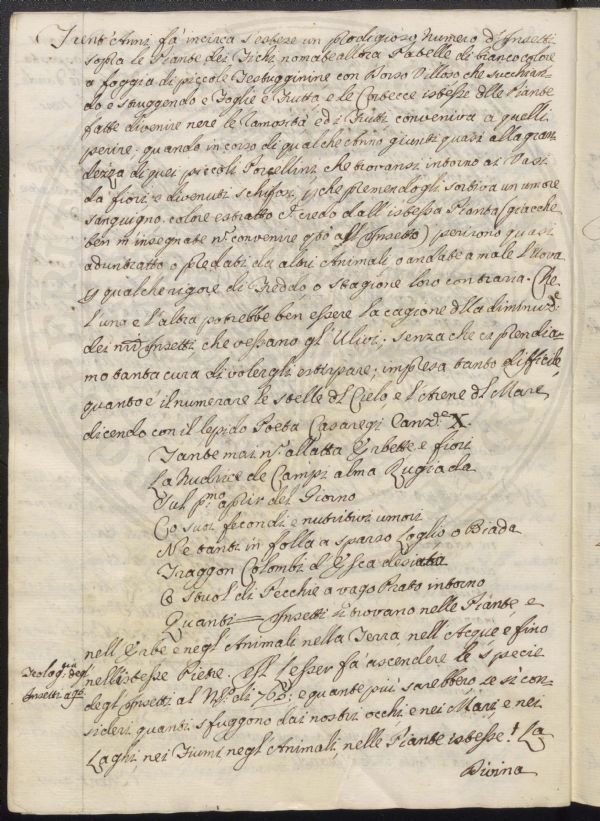 Trent'Anni fà incirca s'estese un prodigioso Numero d'Insetti
sopra le Piante dei Fichi, nomate allora Tabelle di bianco colore
a foggia di piccole Testugginine con Dorso Villoso, che succhian-
do e struggendo e Foglie e Frutta, e le Cortecce istesse dlle Piante
fatte divenire nere le ramosità ed i Frutti conveniva a quelli
perire. quando in corso di qualche Anno giunti quasi alla gran-
dezza di quei piccoli Porcellini che trovansi intorno ai Vasi
da fiori, e divenuti schifosi, che premendogli sortiva un umore
sanguigno. colore estratto credo dall'istessa Pianta (giacche
ben m'insegnate convenire all'Insetto) perirono quasi
ad un tratto o predati da altri Animali o andate a male l'Uova
qualche rigore di freddo o stagione loro contraria. Che
l'una e l'altra potrebbe ben essere la cagione dlla diminuz.e
dei nri Insetti che vessano gl'Ulivi; senza che ci prendia-
mo tanta cura di volergli estirpare; impresa tanto difficile,
quanto è il numerare le stelle dl Cielo, e l'Arene dl Mare
dicendo con il lepido Poeta Casaregi Canz.e X.
Tante mai n. allatta Erbette e fiori
La Nudrice de Campi alma Rugiada
Sul p.mo aprir del Giorno
Co suoi fecondi e nutritivi umori
Ne tanti in folla a sparso Loglio o Biada
Traggon Colombi d'Esca desiata
O stuol di Pecchie a vago Prato intorno
Quanti = Insetti si trovano nelle Piante, e
nell'Erbe e negl'Animali nella Terra nell'Acque e fino
nell'istesse Pietre. l'esser fà ascendere le specie
degl'Insetti al N.o di 765; e quante più sarebbero se si con-
sideri quanti sfuggono dai nostri occhi e nei Mari, e nei
Laghi, nei Fiumi negl'Animali, nelle Piante istesse! La
Divina
Teolog.ia degl'
Insetti